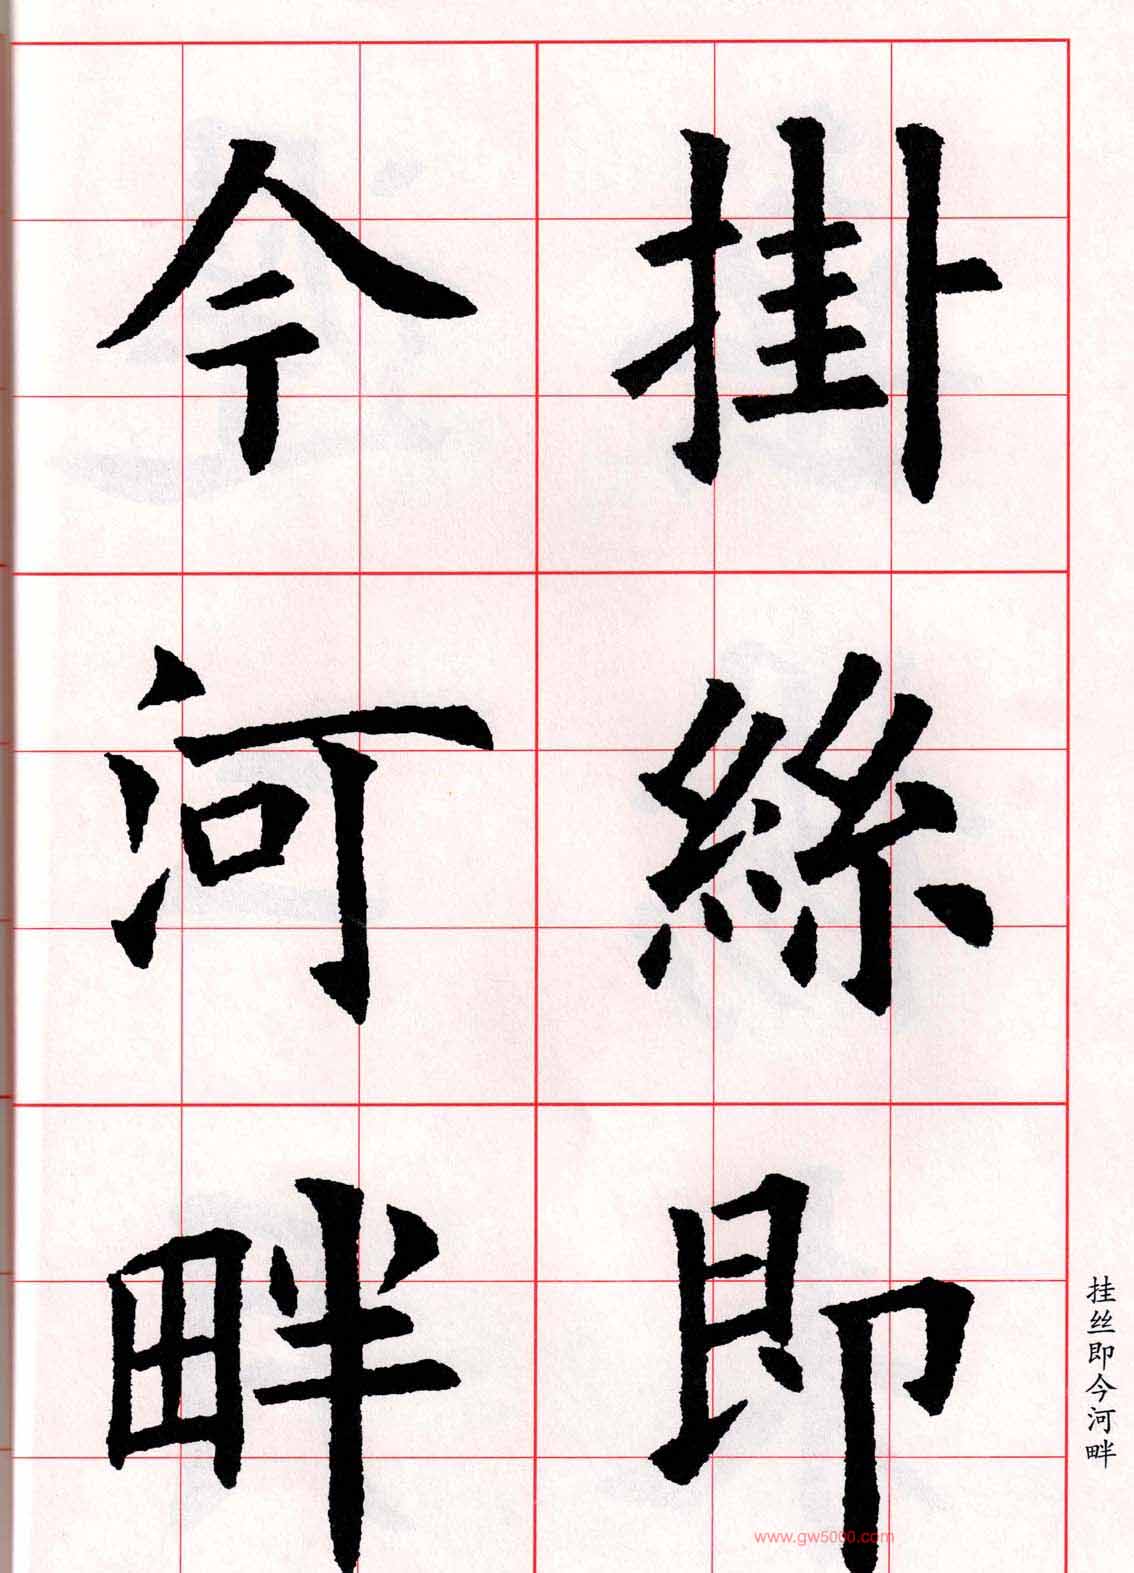 掛絲即
今河畔
挂丝即今河畔
www.gw5000.com